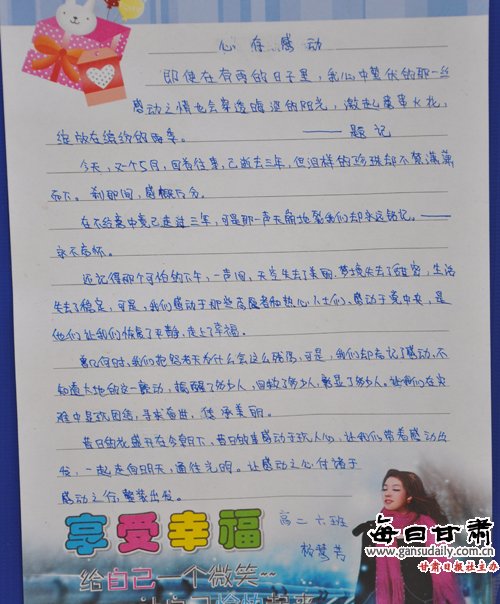 心存感动
即使在有雨的日子里，我心中蛰伏的那一丝
感动之情也会穿透晦涩的阳光，激起星星火花，
绽放在缤纷的雨季。 ——题记
今天，又个5月，回看往事，已逝去三年，但泪样的珍珠却不禁潸潸
而下。刹那间，感概万分。
在不经意中竟已走过三年，可是那一声天崩地裂我们却永远铭记。——
永不忘怀。
还记得那个可怕的下午，一声闷，天空失去了美丽，梦境失去了甜密，生活
失去了稳定，可是，我们感动于那些志愿者和热心人士们，感动于党中央，是
他们让我们恢复了平静，走上了幸福。
曾几何时，我们抱怨老天为什么会这么残忍，可是，我们却忘记了感动，不
知道大地的这一颤动，摇醒了多少人，回报了多少人，彰显了多少人。让我们在灾
难中显现团结，寻求奋进，传承美丽。
昔日的花盛开在今朝下，昔日的事感动于现人心，让我们带着感动出
发，一起走向明天，通往光明，让感动之心付诸于
感动之行，整装出发。
高二六班
杨慧芳
享受幸福
给自己一个微笑~~
让自己愉快起来
每日甘肃
www.gansudaily.com.cn
甘肃日报社主办